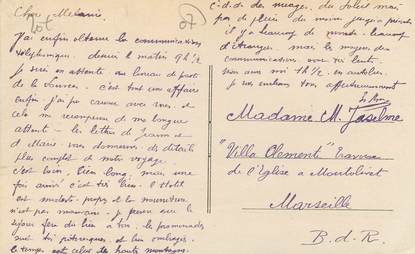 Cher Melanie.
J'ai enfin obtenu la communication
téléphonique. depuis le matin 9h ½
je suis en attente au bureau de poste
de la Vanoise. c'est tout une affaire
enfin j'ai pu causer avec vous. et
cela me recompense de ma longue
attente – les lettres de Jeanne et
de Marie vous donneront des détails
plus complet de notre voyage.
c'est bien, bien long, mais une
fois arrivé c'est très bien. l'Hotel
est modeste. propre et la nourriture
n'est pas mauvaise. je pense que le
séjour fera du bien à tous. les promenades
sont très pittoresques et bien ombragées.
le temps est celui des hautes montagnes.
c.d.d. de nuages, du soleil mais
pas de pluie du moins jusqu'à présent
il y a beaucoup de monde. beaucoup
d'étrangers. mais les moyens de
communications sont très lents.
1h ½. en autobus.
je vous embrasse tous affectueusement
Madame M. Joselme
"Villa Clementi" Traverse
de l'Eglise à Montolivet
Marseille
B. d. R.